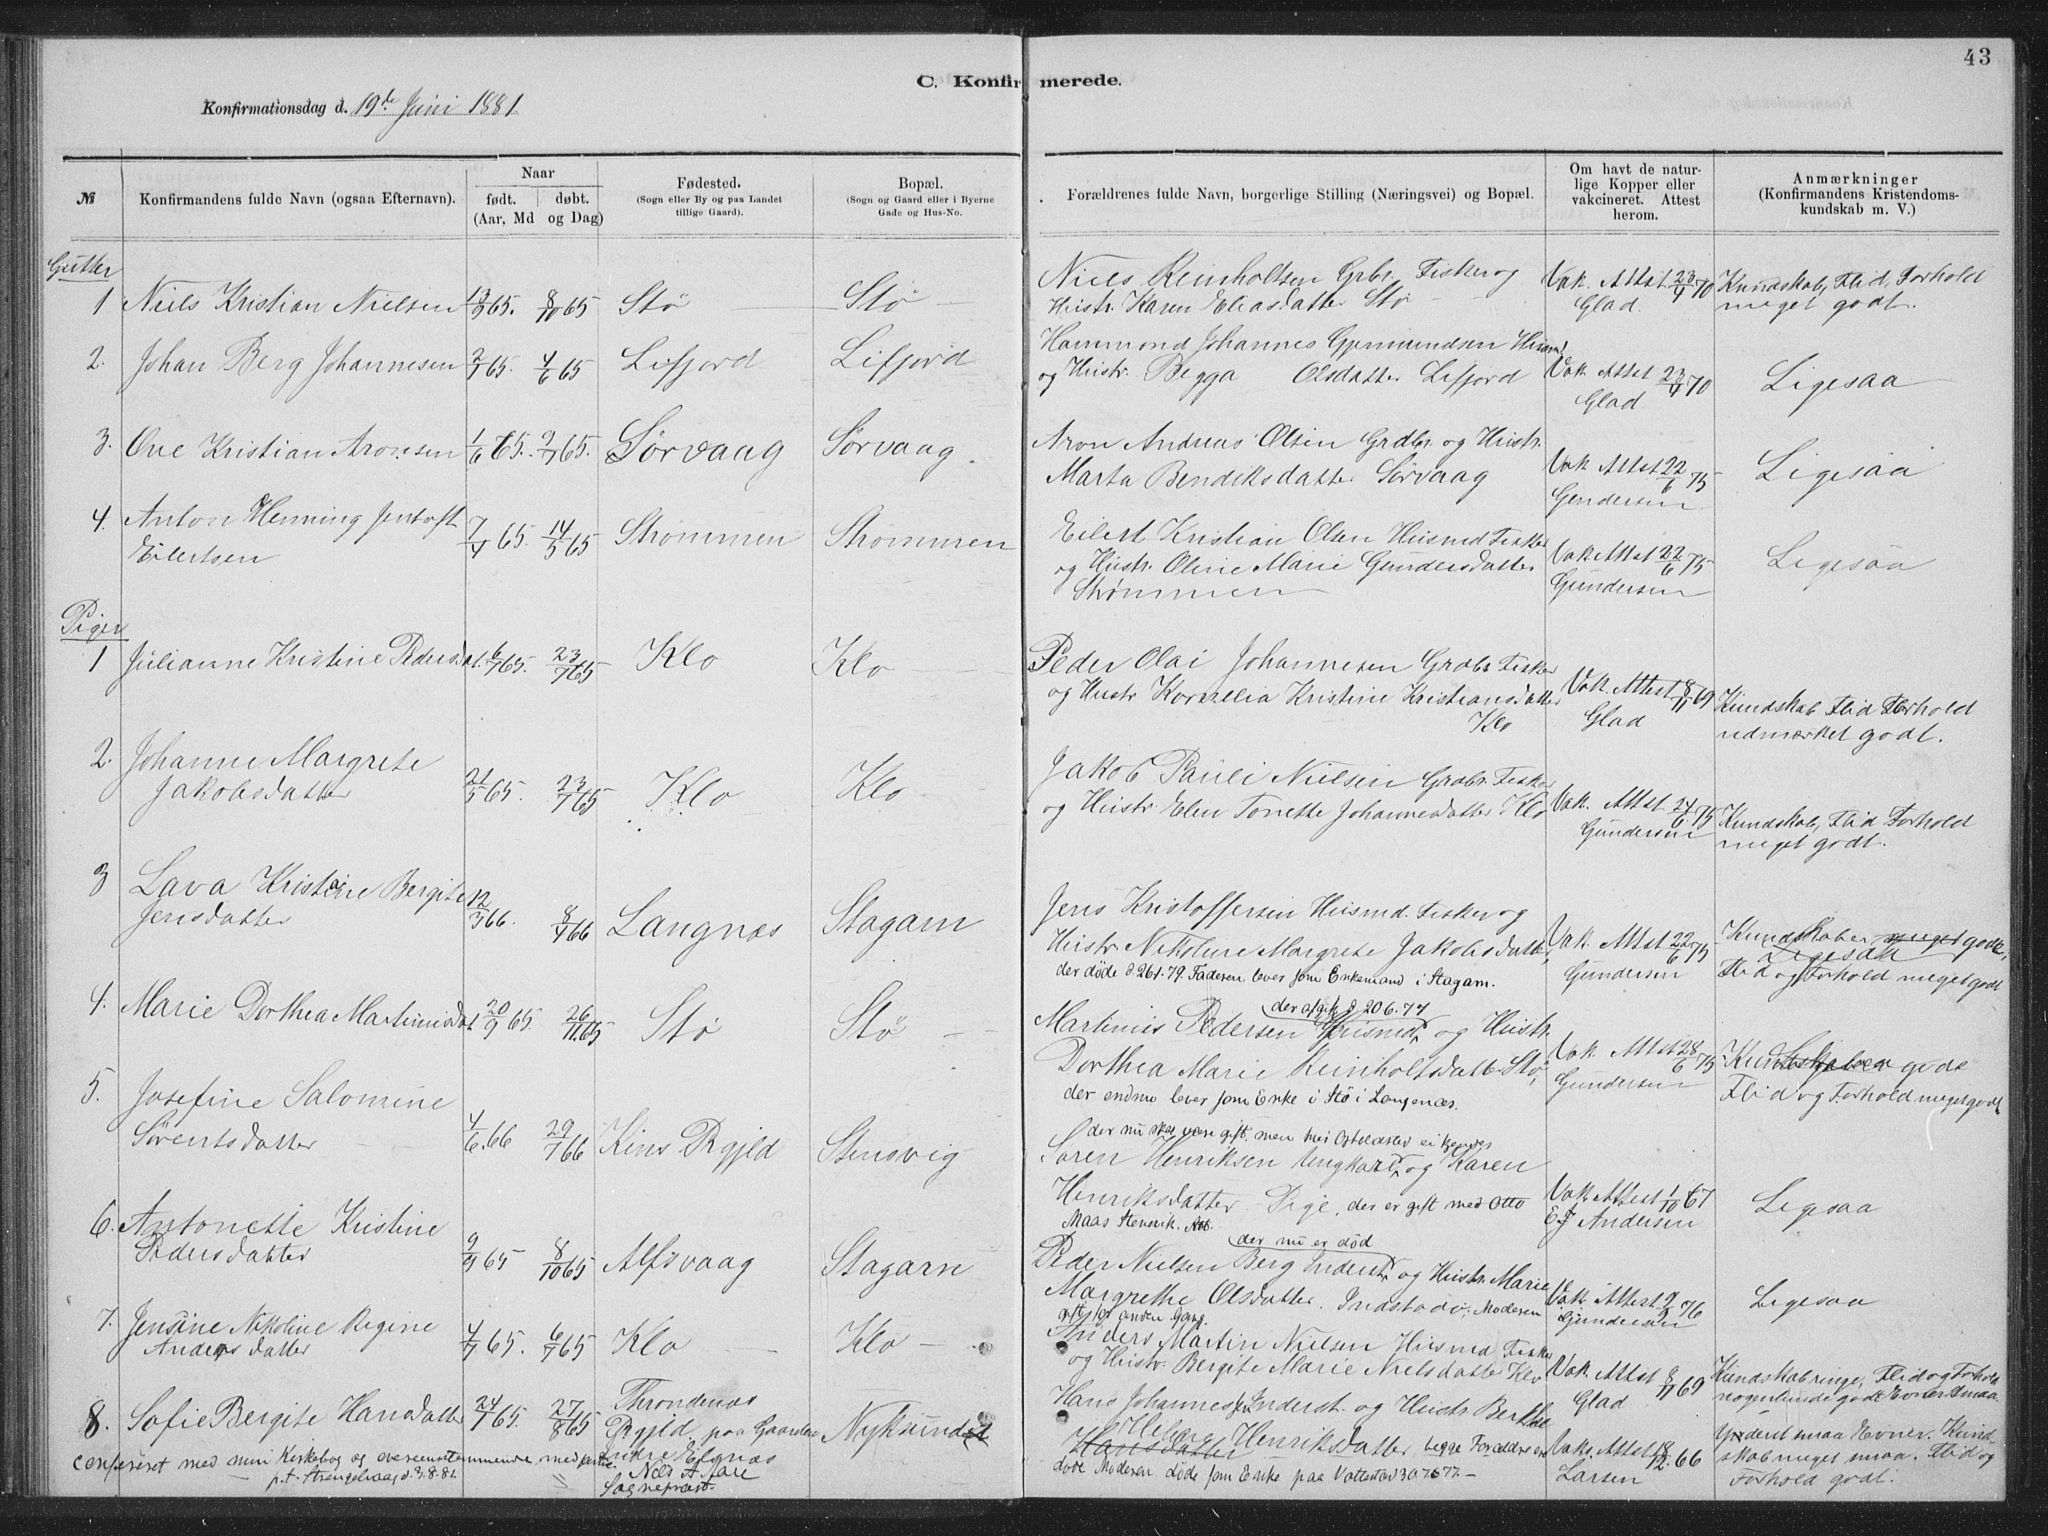 43
C. Konfirmerede.
Konfirmationsdag d. 19de Juni 1881.
№
Konfirmandens fulde Navn (ogsaa Efternavn).
Naar
født. (Aar, Md
døbt. og Dag)
Fødested.
(Sogn eller By og paa Landet
tillige Gaard).
Bopæl.
(Sogn og Gaard eller i Byerne
Gade og Hus-No.
Forældrenes fulde Navn, borgerlige Stilling (Næringsvei) og Bopæl.
Om havt de natur-
lige Kopper eller
vakcineret. Attest
herom.
Anmærkninger
(Konfirmandens Kristendoms-
kundskab m. V.)
Gutter
1 Niels Kristian Nielsen 13/9 65. 8/10 65 Stø Stø
Niels Reinholtsen Grbr. Fisker og
Hustr. Karen Eliasdatter Stø
Vak. Attest 23/9 70
Glad.
Kundskab, Flid, Forhold
meget godt.
2. Johan Berg Johannesen 2/1 65. 4/6 65 Lifjord Lifjord
Hammond Johannes Gjermundsen Husmd
og Hustr. Begga Olsdatter Lifjord
Vak Attest 23/9 70
Glad
Ligesaa
3. Ove Kristian Aronsen 1/6 65. 9/7 65. Sørvaag Sørvaag.
Aron Andreas Olsen Grdbr og Hustr.
Marta Bendiksdatter Sørvaag
Vak Attest 22/6 75
Gundersen
Ligesaa
4. Anton Henning Jentoft
Eilertsen
7/4 65. 14/5 65 Strømmen Strømmen
Eilert Kristian Olsen Husmd Fisker
og Hustr. Oline Marie Gundersdatter
Strømmen
Vak Attest 22/6 75
Gundersen
Ligesaa
Piger
1 Julianne Kristine Pedersdat. 6/1 65. 23/7 65 Klo Klo
Peder Olai Johannesen Grdbr Fisker
og Hustr Kornelia Kristine Kristiansdatter
Klo
Vak. Attest 8/11 69
Glad
Kundskab Flid Forhold
udmærket godt.
2. Johanne Margrete
Jakobsdatter
21/5 65. 23/7 65 Klo Klo
Jakob Pauli Nielsen Grdbr. Fisker
og Hustr Elen Tonette Johannesdatter Klo
Vak. Attest 24/6 75
Gundersen
Kundskab, Flid Forhold
meget godt.
3 Lava Kristine Bergite
Jensdatter
12/3 66. 8/4 66 Langnæs Stagarn
Jens Kristoffersen Husmd. Fisker og
Hustr. Nikoline Margrete Jakobsdatter,
der døde d 26.1.79. Faderen lever som Enkemand i Stagarn.
Vak Attest 22/6 75
Gundersen
Kundskaber meget gode,
Ligesaa
Flid og Forhold meget godt
4. Marie Dorthea Martinusdat 20/9 65. 26/11 65 Stø Stø
der afgik d 20 6. 77
Martinus Pedersen Husmd, og Hustr.
Dorthea Marie Reinholtsdatter Stø,
der endnu lever som Enke i Stø i Langenæs.
Vak Attest 28/6 75
Gundersen
Kundskaber gode
Flid og Forhold meget godt
5. Josefine Salomine
Sørentsdatter
4/6. 66 29/7 66 Kins Prgjld Stensvig
der nu skal være gift, men hvis Opholdssted ei kjendes
Søren Henriksen Ungkarl, og Karen
Henriksdatter Pige, der er gift med Otto
Maas Henrik.
Vak Attest 1/10 67
E. J Andersen
Ligesaa
6. Antonette Kristine
Pedersdatter
9/9 65 8/10 65 Alfsvaag Stagarn
der nu er død
Peder Nielsen Berg Inderst, og Hustr. Marie
Margrethe Olsdatter. Indstadø; Moderen
gift for anden Gang.
Vak Attest 9/2 76
Gundersen
Ligesaa
7. Jensine Nikoline Regine
Andersdatter
4/7 65. 6/7 65 Klo Klo
Anders Martin Nielsen Husmd Fisker
og Hustr. Bergite Marie Nielsdatter Klo
Vak. Attest 8/11 69
Glad
Kundskab ringe, Flid og Forhold
nogenlunde godt Evner smaa
8. Sofie Bergite Hansdatter 24/7 65. 27/8 65
Throndenæs
Prgjld, paa Gaarden
Indre Elgnæs
Nyksund
Hans Johannes Inderst. og Hustr Berthe
Helene Henriksdatter, begge Forældre ere
Hansdatter
døde Moderen døde som Enke paa 30 7 77. -
Vak Attest 18/12. 66
Larsen
Yderst smaa Evner. Kund-
skab meget smaa. Flid og
Forhold godt.
confereret med min Kirkebog og overeensstemmende med samme
p.t. Strengelvaag d. 3.8.81.
Nils A.
Sognepræst.